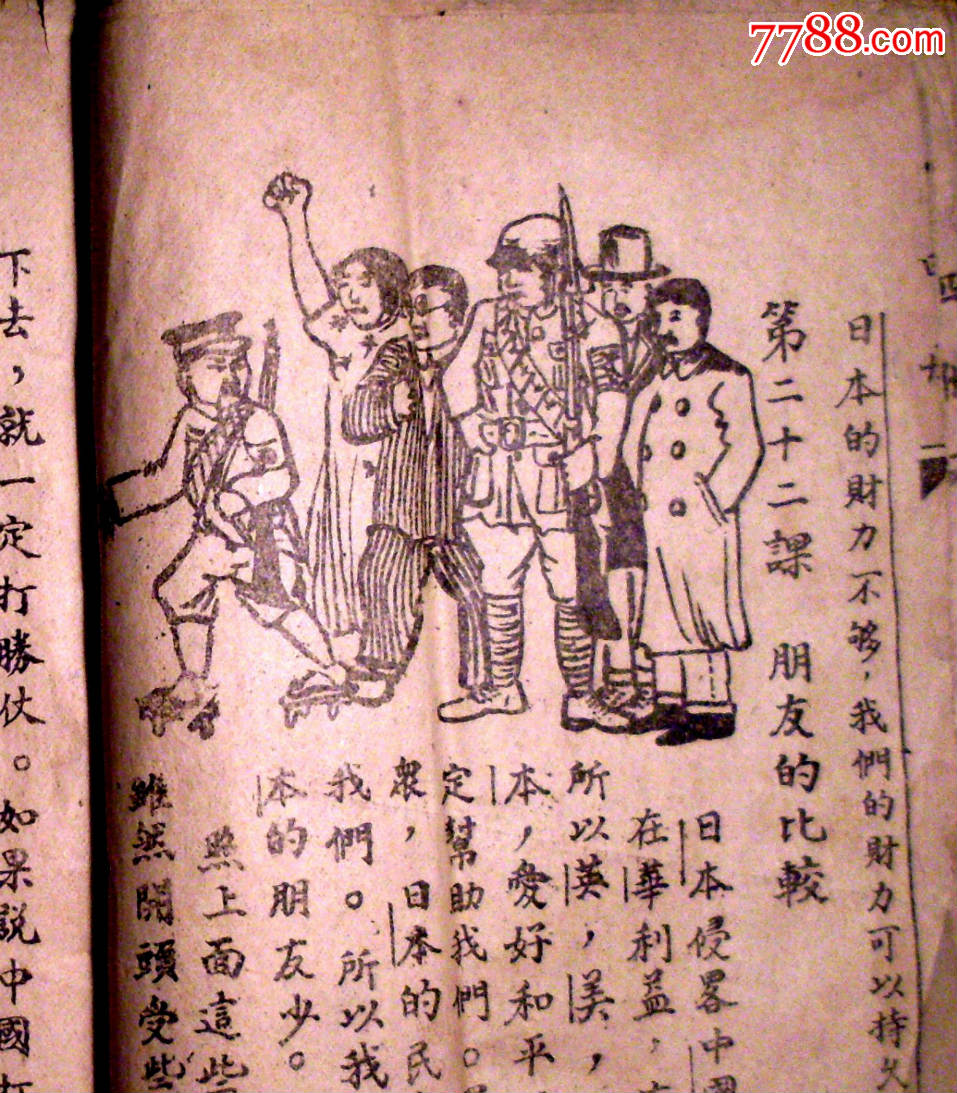 7788.com
日本的財力不够，我們的財力可以持久
第二十二課 朋友的比較
日本侵畧中國
在華利益，
所以英，美，
本，愛好和平
定幫助我們。
衆，日本的民
我們。所以我
本的朋友少。
照上面這些
雖然開頭受些
下去，就一定打勝仗。如果説中國打